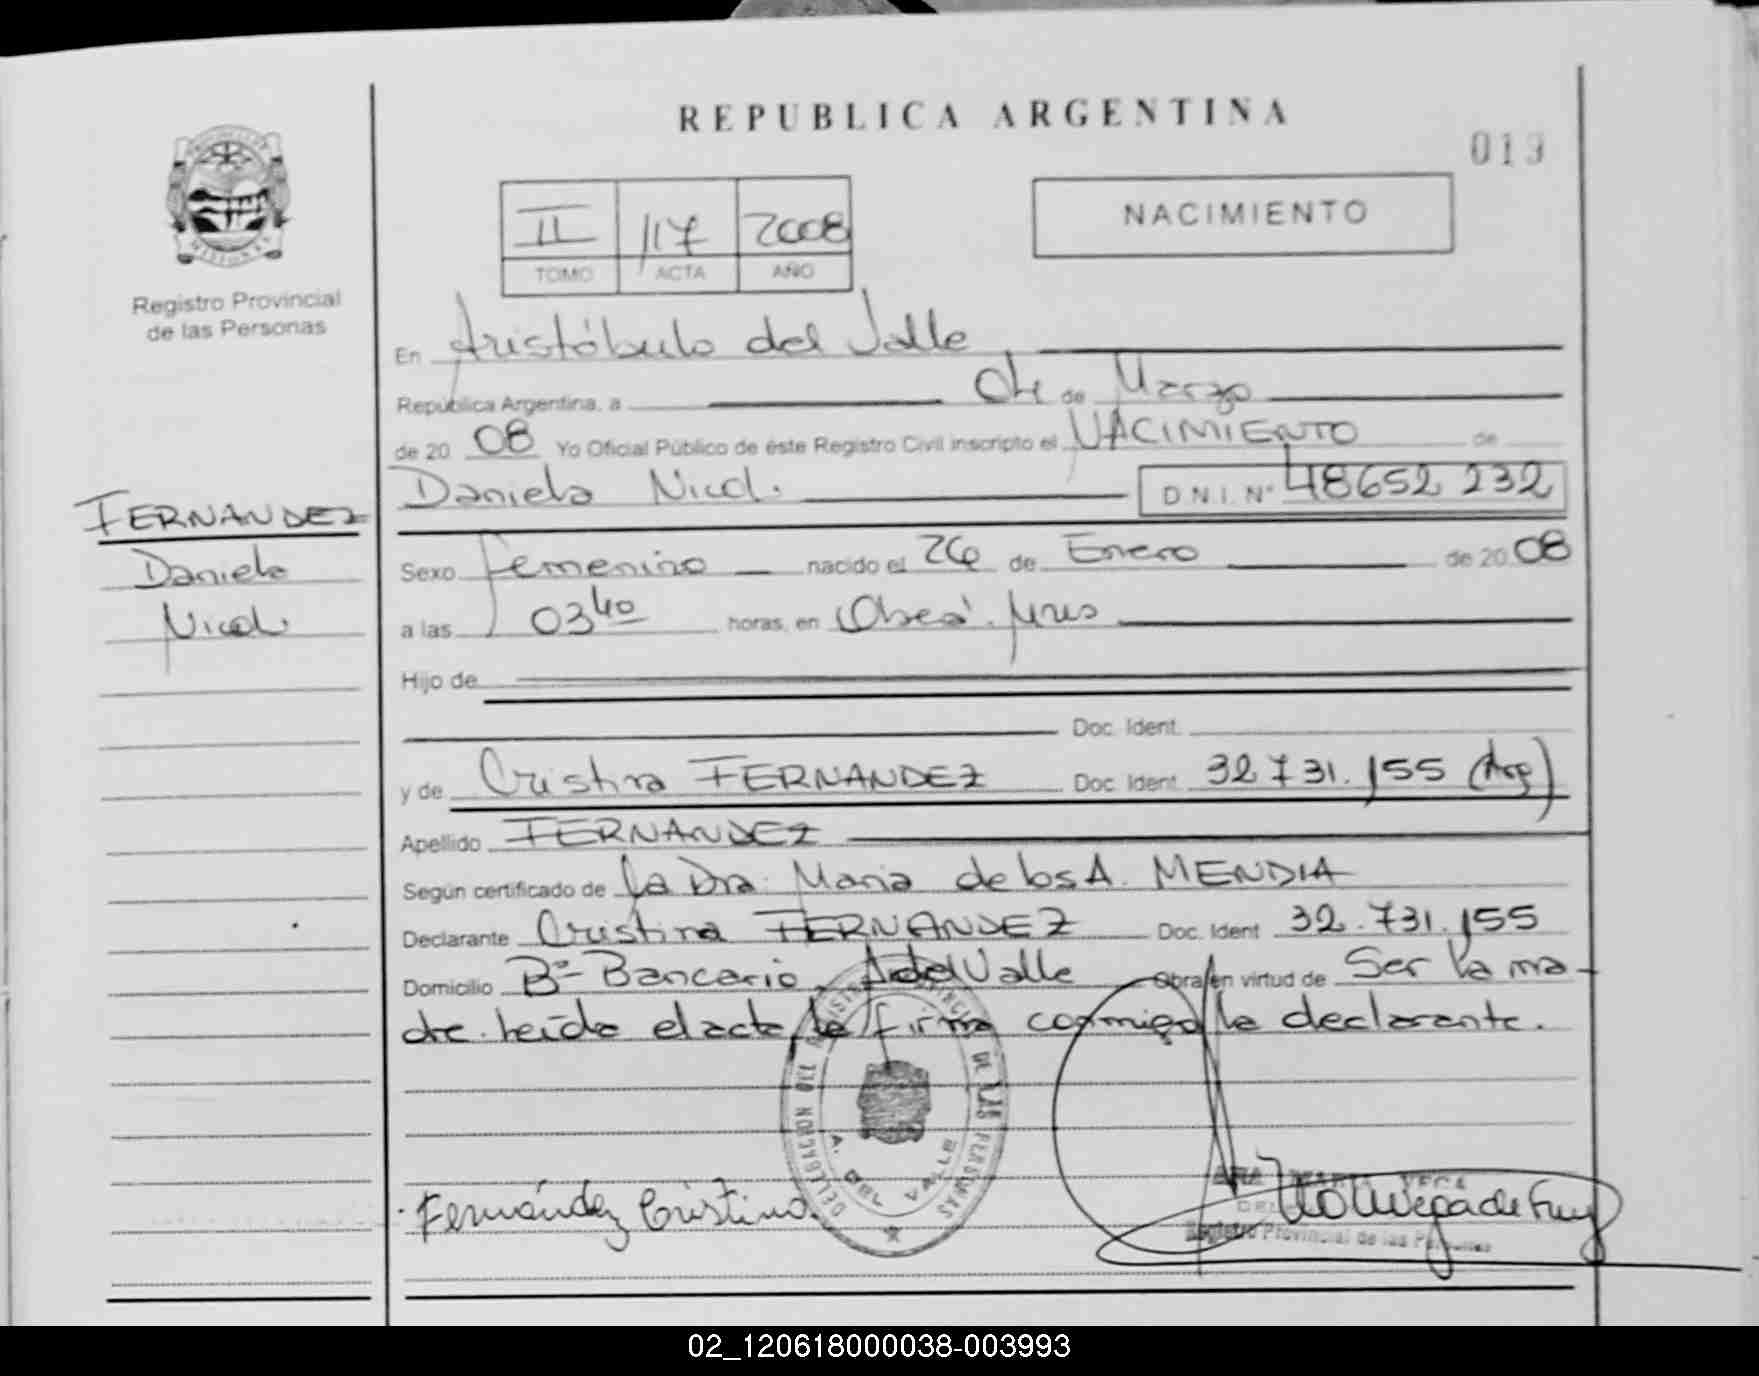 REPUBLICA ARGENTINA
013
NACIMIENTO
II 117 2008
TOMO ACTA AÑO
Registro Provincial
de las Personas
En Aristóbulo del Valle
República Argentina, a 04 de Marzo
de 2008 Yo Oficial Público de éste Registro Civil inscripto el NACIMIENTO de
Daniela Nicol. D.N.I. Nº 48652 232
FERNANDEZ
Daniela
Nicol.
Sexo femenino nacido el 26 de Enero de 2008
a las 03 40 horas, en Oberá. Mnes
Hijo de
Doc. Ident.
y de Cristina FERNANDEZ Doc. Ident. 32 731.155 (Arg)
Apellido FERNANDEZ
Según certificado de la Dra. Maria de los A. MENDIA
Declarante Cristina FERNANDEZ Doc. Ident 32.731.155
Domicilio Bº Bancario, A del Valle Obra en virtud de Ser la ma-
dre. leída el acta la firma conmigo la declarante.
DELEGACION DEL REGISTRO PROVINCIAL DE LAS PERSONAS
A. DEL VALLE
Fernández Cristina
Registro Provincial de las Personas
02_120618000038-003993